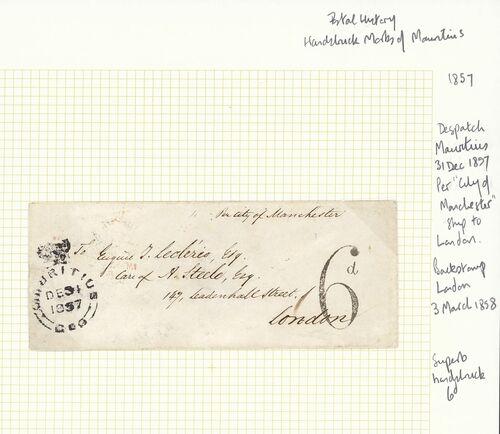 Postal History
Handstruck Marks of Mauritius
1857
Despatch
Mauritius
31 Dec 1857
Per "City of
Manchester"
Ship to
London.
Backstamp
London
3 March 1858
Superb
handstruck
6d
Per City of Manchester
To Eugène J. Leclézio, Esq.
Care of A. Steele, Esq.
147, Leadenhall Street,
London
6d
MAURITIUS
DE 31
1857
GPO